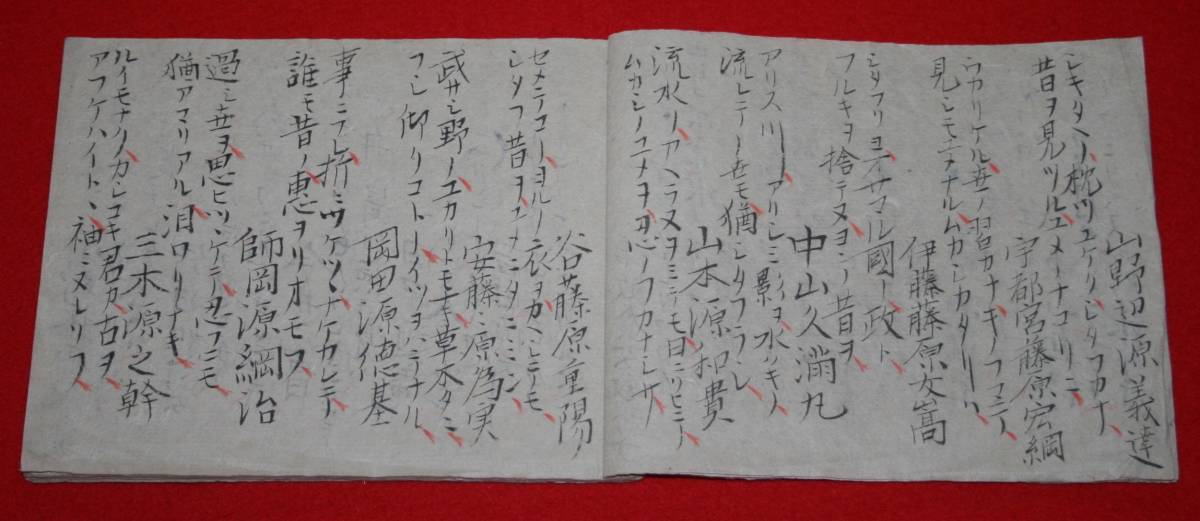 山野辺源義達
シキタヘノ枕ツユケクシタフカナ
昔ヲ見ツルユメノナコリニ
宇都宮藤原宏綱
ウカリケル世ノ習カナキノフマテ
見シモエナルムカシカタリ
伊藤藤原友嵩
シタフリヨオサマル國ノ政ト
フルキヲ捨テヌヨシノ昔ヲ
中山久満丸
アリス川アリシミ影ヨ水クキノ
流レテノ世モ猶シタフラシ
山本源知貴
流水ノアヘラヌヲミテモ日ニソヒテ
ムカシノユメヲ忍フカナシサ
谷藤原重陽
セメテコノヨルノ衣ヲカヘシテモ
シタフ昔ヲユメニタニミン
安藤原為実
武サシ野ノユカリトモナキ草木タニ
フシ仰クコトノイツヲハテナル
岡田源徳基
事ニフレ折ニツケツヽナケカレテ
誰モ昔ノ恵ヲソオモフ
師岡源綱治
過シ世ヲ思ヒツヽケテ忍フニモ
猶アマリアル泪ナリケキ
三木源之幹
ルイモナクカシコキ君カ古ヲ
アフケハイトヽ袖ソヌレソフ